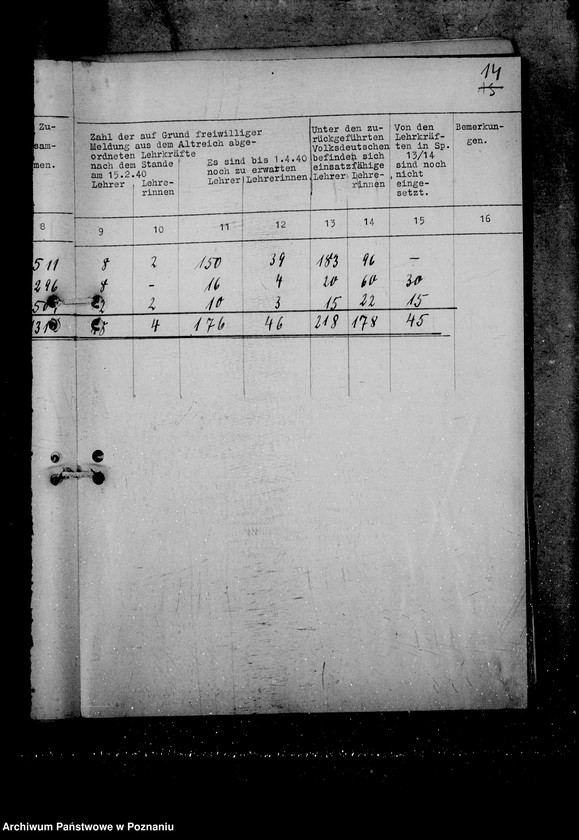 14
15
Zu-
sam-
men.
Zahl der auf Grund freiwilliger
Meldung aus dem Altreich abge-
ordneten Lehrkräfte
nach dem Stande
am 15.2.40
Lehrer Lehre-
rinnen
Es sind bis 1.4.40
noch zu erwarten
Lehrer Lehrerinnen
Unter den zu-
rückgeführten
Volksdeutschen
befinden sich
einsatzfähige
Lehrer Lehre-
rinnen
Von den
Lehrkräf-
ten in Sp.
13/14
sind noch
nicht
einge-
setzt.
Bemerkun-
gen.
8 9 10 11 12 13 14 15 16
511 8 2 150 39 183 96 —
296 8 - 16 4 20 60 30
2 2 10 3 15 22 15
4 176 46 218 178 45
Archiwum Państwowe w Poznaniu